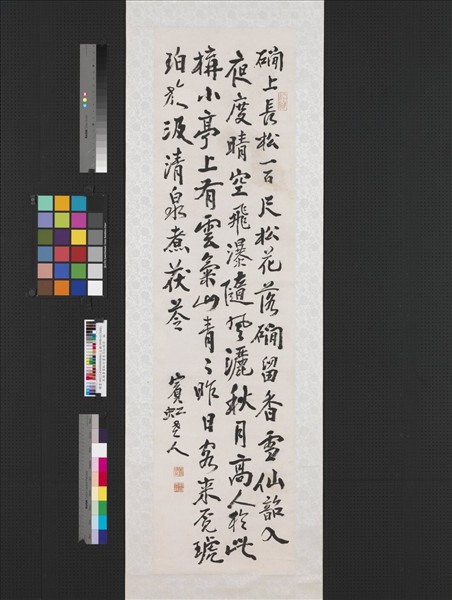 磵上長松一百尺松花落磵留香雪仙韶入
夜度晴空飛瀑隨風灑秋月高人於此
構小亭上有雲氣山青々昨日客來覓琥
珀汲清泉煮茯苓
賓虹老人